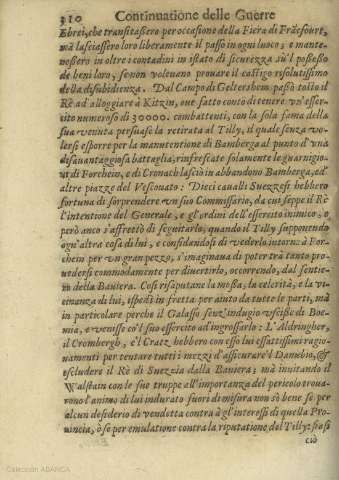 310 Continuatione delle Guerre
Ebrei, che transitassero per occasione della Fiera di Frãcfourt,
mà lasciassero loro liberamente il passo in ogni luoco; e mante-
nessero in oltre i contadini in istato di sicurezza sù'l possesso
de beni loro, se non voleano prouare il castigo risolutissimo
della disubidienza. Dal Campo di Geltershem passò tosto il
Rè ad alloggiare à Kitzin, oue fatto conto di tenere vn'esser-
cito numeroso di 30000. combattenti, con la sola fama della
sua venuta persuase la retirata al Tilly, il quale senza vo-
lersi esporre per la manutentione di Bamberga al punto d'vna
disauantaggiosa battaglia, rinfrescate solamente le guarnigio-
ni di Forchein, e di Cronach lasciò in abbandono Bamberga, ed
altre piazze del Vescouato: Dieci caualli Suezzesi hebbero
fortuna di sorprendere vn suo Commissario, da cui seppe il Rè
l'intentione del Generale, e gl'ordini dell'essercito inimico; e
però anco s'affrettò di seguitarlo, quando il Tilly supponendo
ogn'altra cosa di lui, e confidandosi di vederlo intorno à For-
chein per vn gran pezzo, s'imaginaua di poter trà tanto pro-
uedersi commodamente per diuertirlo, occorrendo, dal sentie-
ro della Bauiera. Così risaputane la mossa, la celerità, e la vi-
cinanza di lui, ispedì in fretta per aiuto da tutte le parti, mà
in particolare perche il Galasso senz'indugio vscisse di Boe-
mia, e venisse co'l suo essercito ad ingrossarlo: L'Aldringher,
il Crombergh, e'l Cratz hebbero con esso lui essattissimi ragio-
namenti per tentare tutti i mezzi d'assicurare'l Danubio, &
escludere il Rè di Suezzia dalla Bauiera; mà inuitando il
Walstain con le sue truppe all'importanza del pericolo troua-
rono l'animo di lui indurato fuori di misura non sò bene se per
alcun desiderio di vendetta contra à gl'interessi di quella Pro-
uincia, ò se per emulatione contra la riputatione del Tilly: se si
ciò
Colección ABANCA